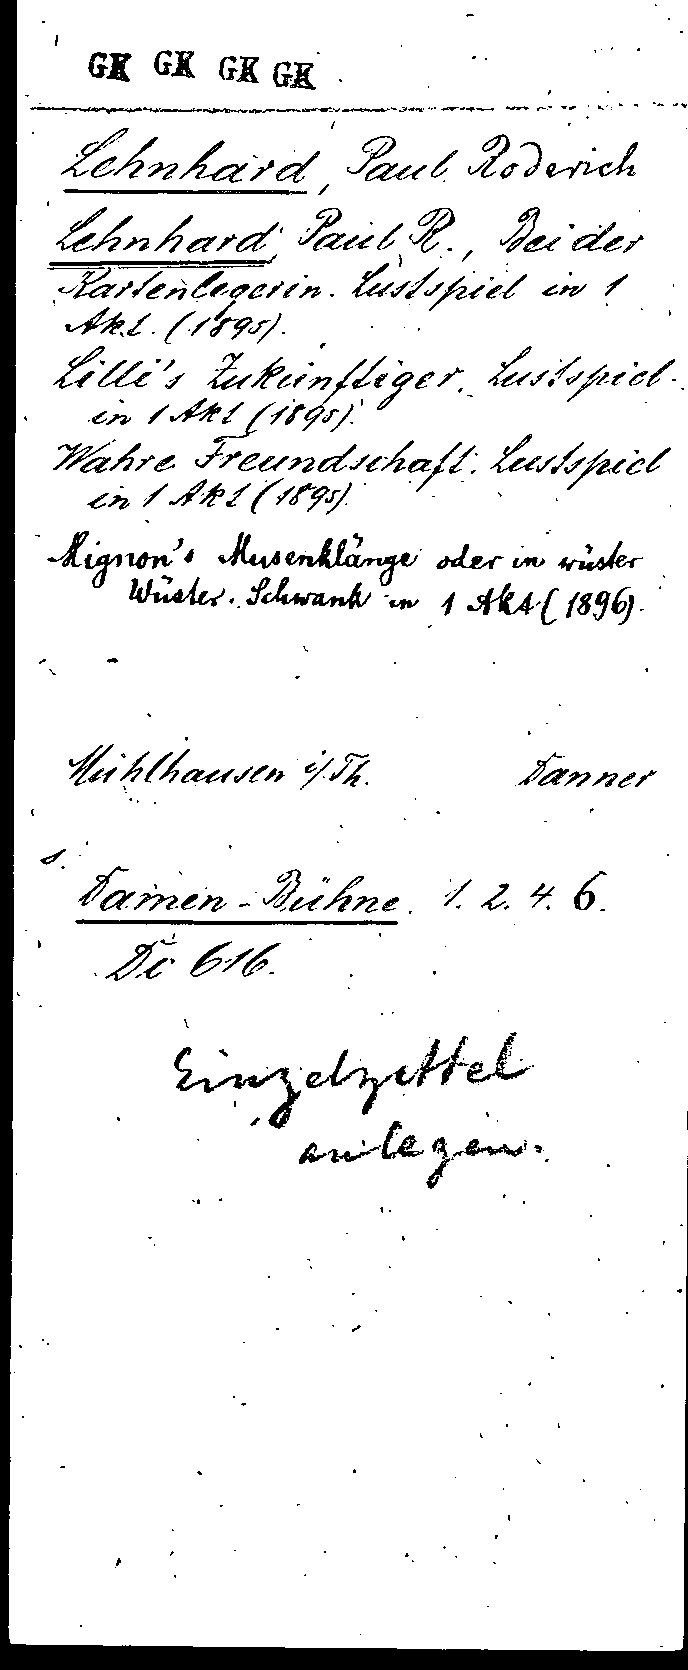 GK GK GK GK
Lehnhard, Paul Roderich
Lehnhard, Paul R., Bei der
Kartenlegerin. Lustspiel in 1
Akt. (1895).
Lilli's Zukünftiger. Lustspiel
in 1 Akt (1895).
Wahre Freundschaft. Lustspiel
in 1 Akt (1895).
Mignon's Musenklänge oder in wüster
Wüster. Schwank in 1 Akt (1896).
Mühlhausen i/Th. Danner
s.
Damen-Bühne. 1. 2. 4. 6.
Dc 616.
Einzelzettel
anlegen.